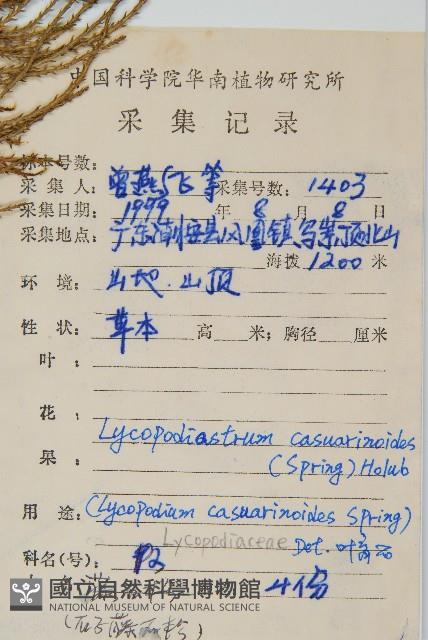 中国科学院华南植物研究所
采集记录
标本号数：
采集人：曾 飞等 采集号数：1403
采集日期：1999 年 8 月 8 日
采集地点：广东 县凤凰镇乌岽顶 山
海拨 1200 米
环境：山地．山顶
性状：草本 高 米；胸径 厘米
叶：
花：
Lycopodiastrum casuarinoides
果：
(Spring) Holub
用途：(Lycopodium casuarinoides Spring)
Lycopodiaceae Det. 叶
科名(号)：P2
4份
國立自然科學博物館
NATIONAL MUSEUM OF NATURAL SCIENCE